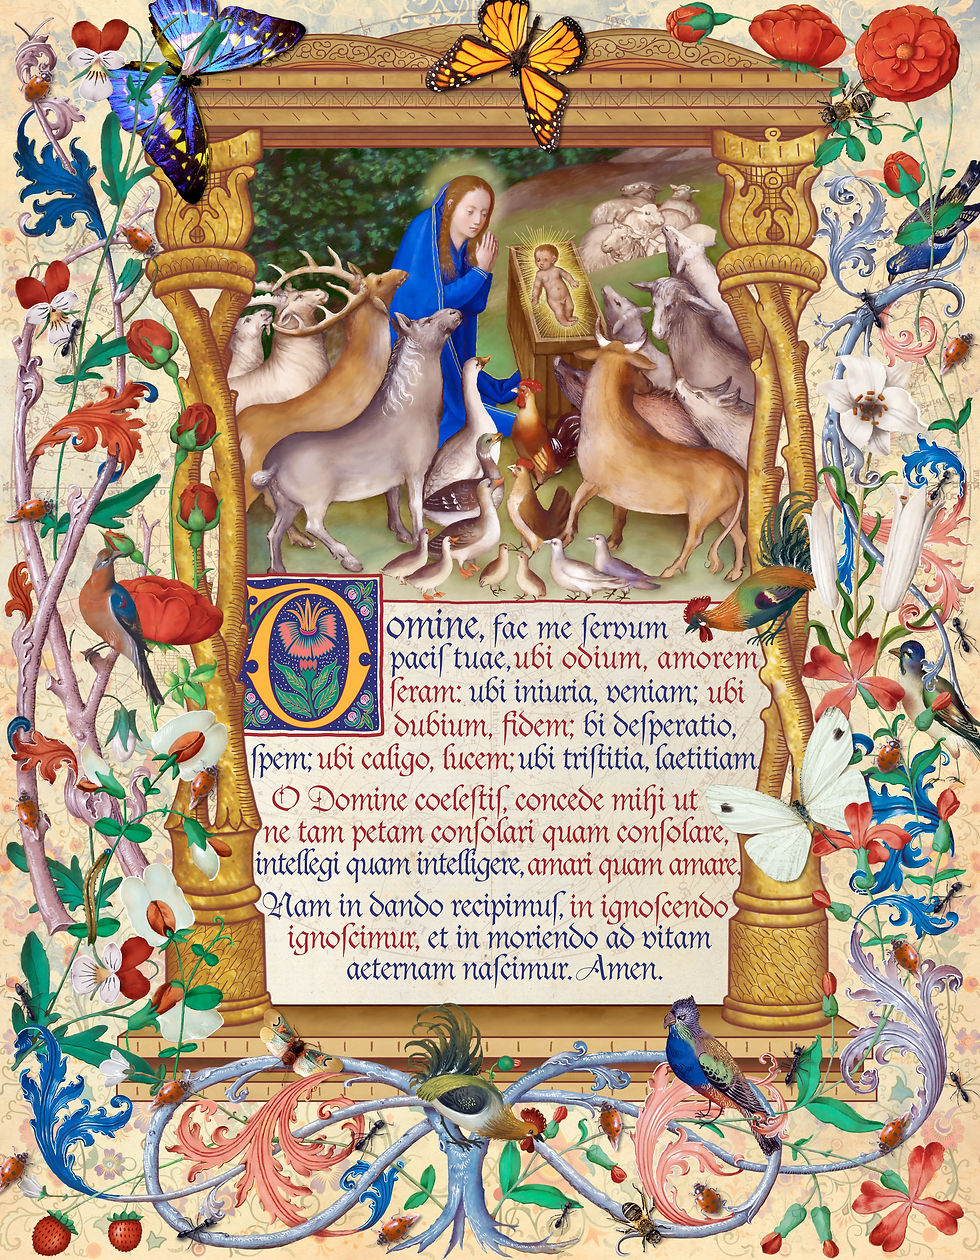 Domine, fac me servum
paciſ tuae, ubi odium, amorem
ſeram: ubi iniuria, veniam; ubi
dubium, fidem; bi deſperatio,
ſpem; ubi caligo, lucem; ubi triſtitia, laetitiam
O Domine coeleſtiſ, concede mihi ut
ne tam petam conſolari quam conſolare,
intellegi quam intelligere, amari quam amare.
Nam in dando recipimuſ, in ignoſcendo
ignoſcimur, et in moriendo ad vitam
aeternam naſcimur. Amen.